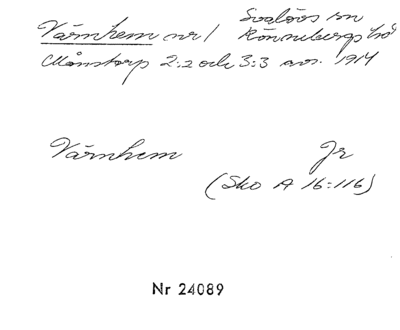 Svalövs sn
Värnhem nr 1 Rönnebergs hd
Månstorp 2:2 och 3:3 avs. 1914
Värnhem Jr
(Sko A 16:116)
Nr 24089